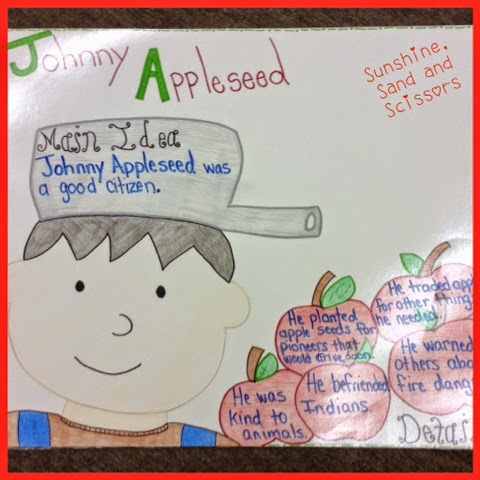 Johnny Appleseed
Sunshine,
Sand and
Scissors
Main Idea
Johnny Appleseed was
a good citizen.
He planted
apple seeds for
pioneers that
would arrive soon.
He traded app
for other things
he needed.
He warned
others abo
fire dang
He befriended
Indians.
He was
kind to
animals.
Detai